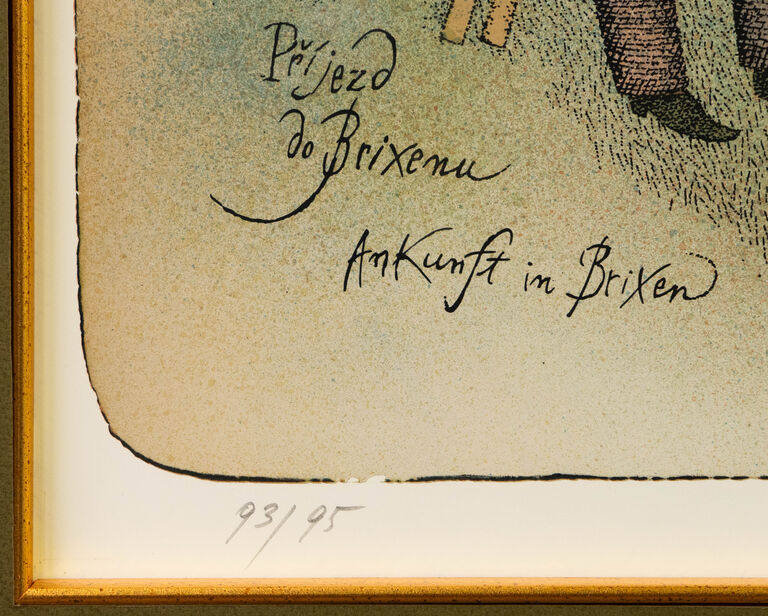 Příjezd
do Brixenu
Ankunft in Brixen
93/95